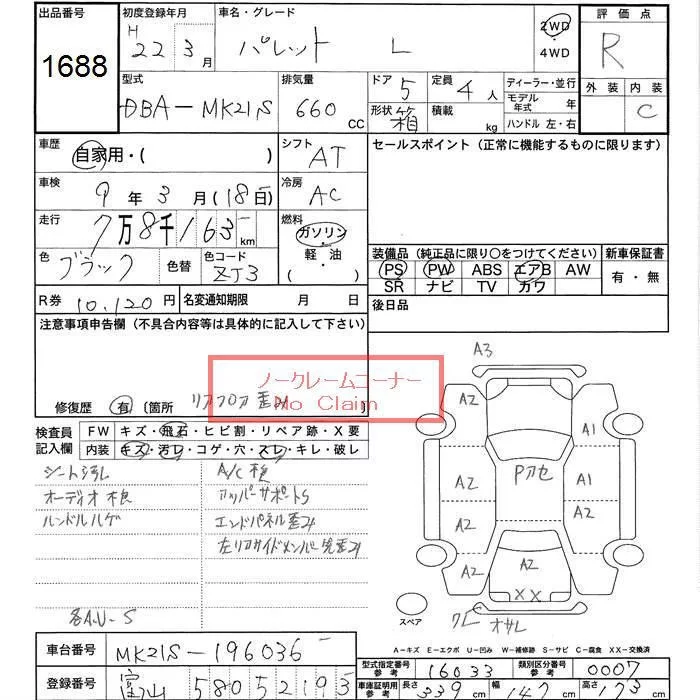 出品番号
1688
初度登録年月
H 22 3月
車名・グレード
パレット L
2WD
・
4WD
評価点
R
外装 内装
C
型式
DBA-MK21S
排気量
660 CC
ドア 5
形状 箱
定員 4人
積載 kg
ディーラー・並行
モデル年式 年
ハンドル 左・右
車歴
自家用・( )
シフト AT
セールスポイント(正常に機能するものに限ります)
車検
9年3月(18日)
冷房 AC
走行
7万8千163km
燃料
ガソリン
・
軽油
( )
色 ブラック 色替
色コード
ZJ3
装備品(純正品に限り○をつけてください)
PS PW ABS エアB AW
SR ナビ TV カワ
新車保証書
有・無
R券 10,120円 名変通知期限 月 日
後日品
注意事項申告欄(不具合内容等は具体的に記入して下さい)
ノークレームコーナー
No Claim
修復歴 有 〔箇所 リアフロア歪み
検査員記入欄
FW キズ・飛石・ヒビ割・リペア跡・X要
内装 キズ・汚レ・コゲ・穴・スレ・キレ・破レ
シート汚れ
オーディオ無
ハンドルハゲ
アッパーサポートS
エンドパネル歪み
各A.U-S
A3
A2
A2 A1
A2 A2
A2
A2
XX
スペア
A-キズ E-エクボ U-凹み W-補修跡 S-サビ C-腐食 XX-交換済
車台番号 MK21S-196036
登録番号 富山 580 5 2193
型式指定番号 参考 16033
類別区分番号 参考 0007
車庫証明用 参考 長さ 339cm 幅 147cm 高さ 173cm